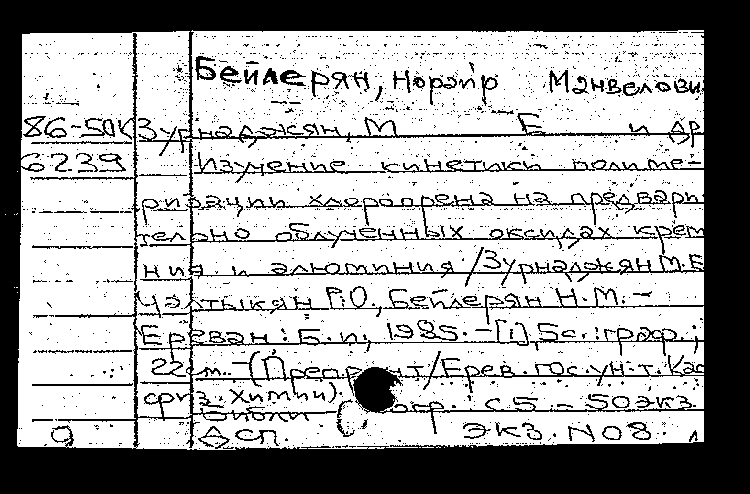 Бейлерян, Норайр Манвелови
86-50К Зурнаджян, М Е и др
6239 Изучение кинетики полиме-
ризации хлоропрена на предвари
тельно облученных оксидах крем
ния и алюминия /Зурнаджян М.Е
Чалтыкян Р.О., Бейлерян Н.М. -
Ереван: Б.и, 1985. - [1], 5с.: граф.;
22см. - (Препринт/Ерев. гос. ун-т. Ка
физ. химии).
Библиогр.: с.5 - 50экз
9 Дсп. экз. N08.